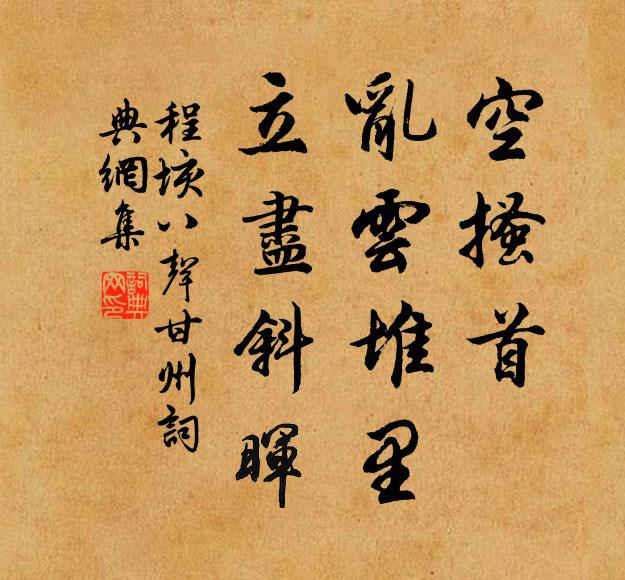 空搔首
亂雲堆里
立盡斜暉
程垓八聲甘州詞
典網集
詞典
网印